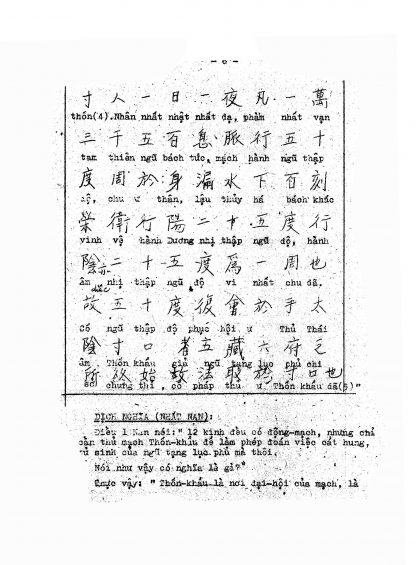 - 6 -
寸人一日一夜凡一萬
thốn(4).Nhân nhất nhật nhất dạ, phàm nhất vạn
三千五百息脈行五十
tam thiên ngũ bách tức, mạch hành ngũ thập
度周於身漏水下百刻
độ, chu ư thân, lậu thủy há bách khắc
榮衛行陽二十五度行
vinh vệ hành Dương nhị thập ngũ độ, hành
陰亦二十五度為一周也
âm diệc nhị thập ngũ độ vi nhất chu dã.
故五十度復會於手太
cố ngũ thập độ phục hội ư Thủ Thái
陰寸口者五藏六府之
âm Thốn khẩu giả ngũ tạng lục phủ chi
所終始故法取於寸口也
sở chung thỉ, cố pháp thủ ư Thốn khẩu dã(5)"
DỊCH NGHĨA (NHẤT NAN):
Điều 1 Nan nói:" 12 kinh đều có động-mạch, nhưng chỉ
cần thủ mạch Thốn-khẩu để làm phép đoán việc cát hung,
tử sinh của ngũ tạng lục phủ mà thôi.
Nói như vậy có nghĩa là gì?"
Thực vậy: " Thốn-khẩu là nơi đại-hội của mạch, là